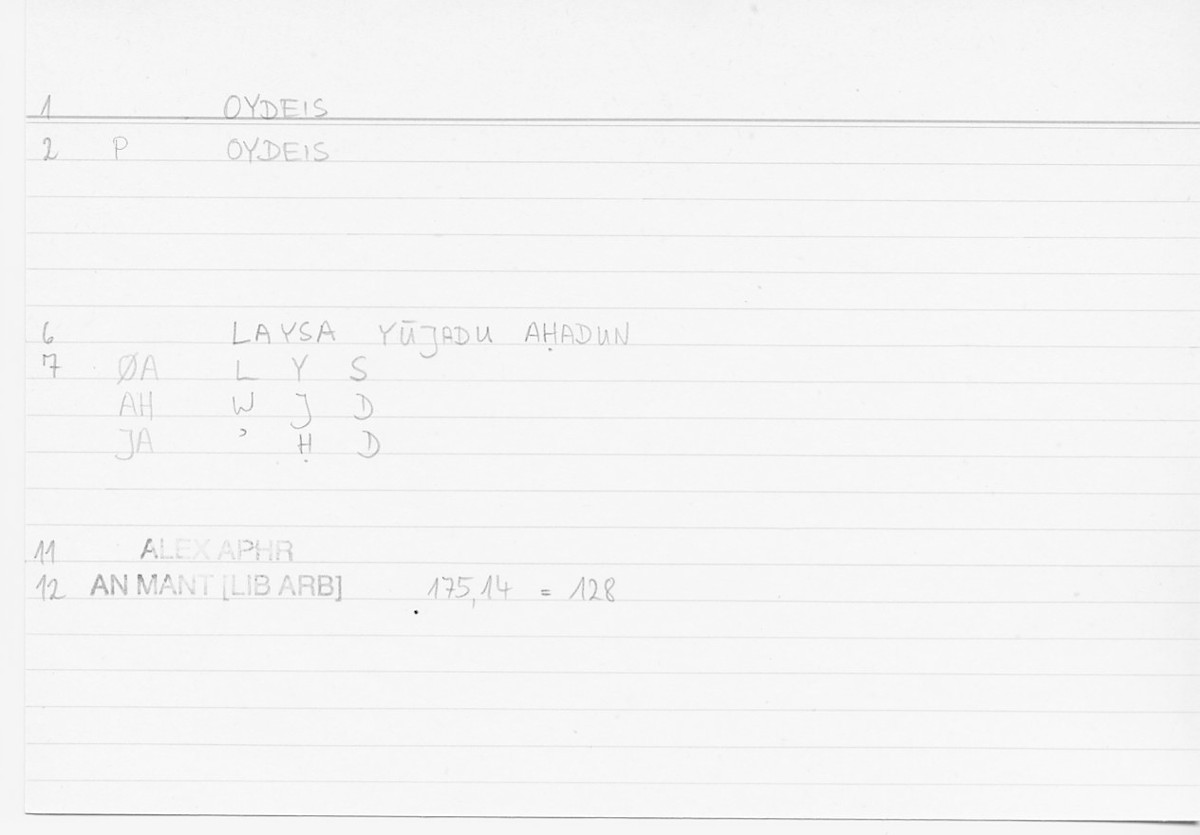 1 OYDEIS
2 P OYDEIS
6 LAYSA YŪJADU AḤADUN
7 ØA L Y S
AH W J D
JA ʾ Ḥ D
11 ALEX APHR
12 AN MANT [LIB ARB] 175,14 = 128